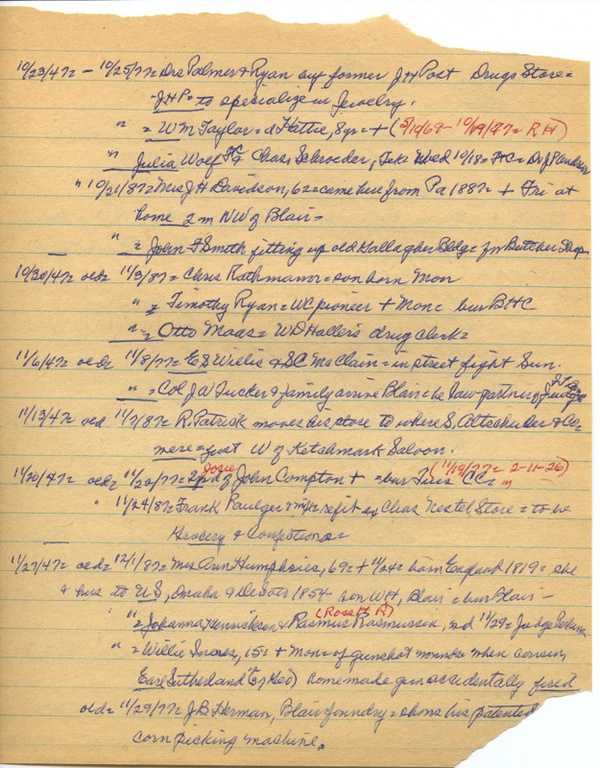 10/23/47= - 10/25/77= Drs Palmer & Ryan buy former JH Post Drugs Store=
-JHP= to specialize in Jewelry.
" = WM Taylor= d Hattie, 8yr= + (5/10/69- 10/19/77= R H)
" Julia Wolf & Chas. Schroeder, Wed 10/18= HC=
" 10/21/87= Mrs J H Davidson, 62= came here from Pa 1887= + Fri at
home 2 m NW of Blair=
" = John F Smith fitting up old Gallagher Bldg= for Butcher Shop
10/30/47= old= 11/3/87= Chas Rathmann= son born Mon
" = Timothy Ryan= WC pioneer + Mon= bur BHC
" = Otto Maas= WD Haller's drug clerk=
11/6/47= old= 11/8/77= ES Willis & SC McClain= in street fight Sun.
" = Col JW Tucker & family arrive Blair= he law-partner of Judge
11/13/47= old 11/7/87= R. Patrick moves his store to where S. Altschuler & Co
were= just W of Ketchmark Saloon.
11/20/47= old= 11/22/77= 2yr d Josie of John Compton + = bur Tues CC= (11/19/77= 2-11-26)
" 11/24/87= Frank Paulger & refit Chas Nestel Store= to be
Grocery & Confections=
11/27/47= old= 12/1/87= Mrs Ann Humphries, 69= + 11/24= born England 1819= she
& hus to US, Omaha & DeSoto 1854- WH, Blair= bur Blair-
" = Johanna Henricksen & Rasmus Rasmussen, md 11/29= Judge (Ross H A)
" = Willie 15= + Mon= of gunshot wounds when cousin,
Earl Sutherland homemade gun accidentally fired
old= 11/29/77= J.B. Herman, Blair foundry= shows his patented
corn picking machine.